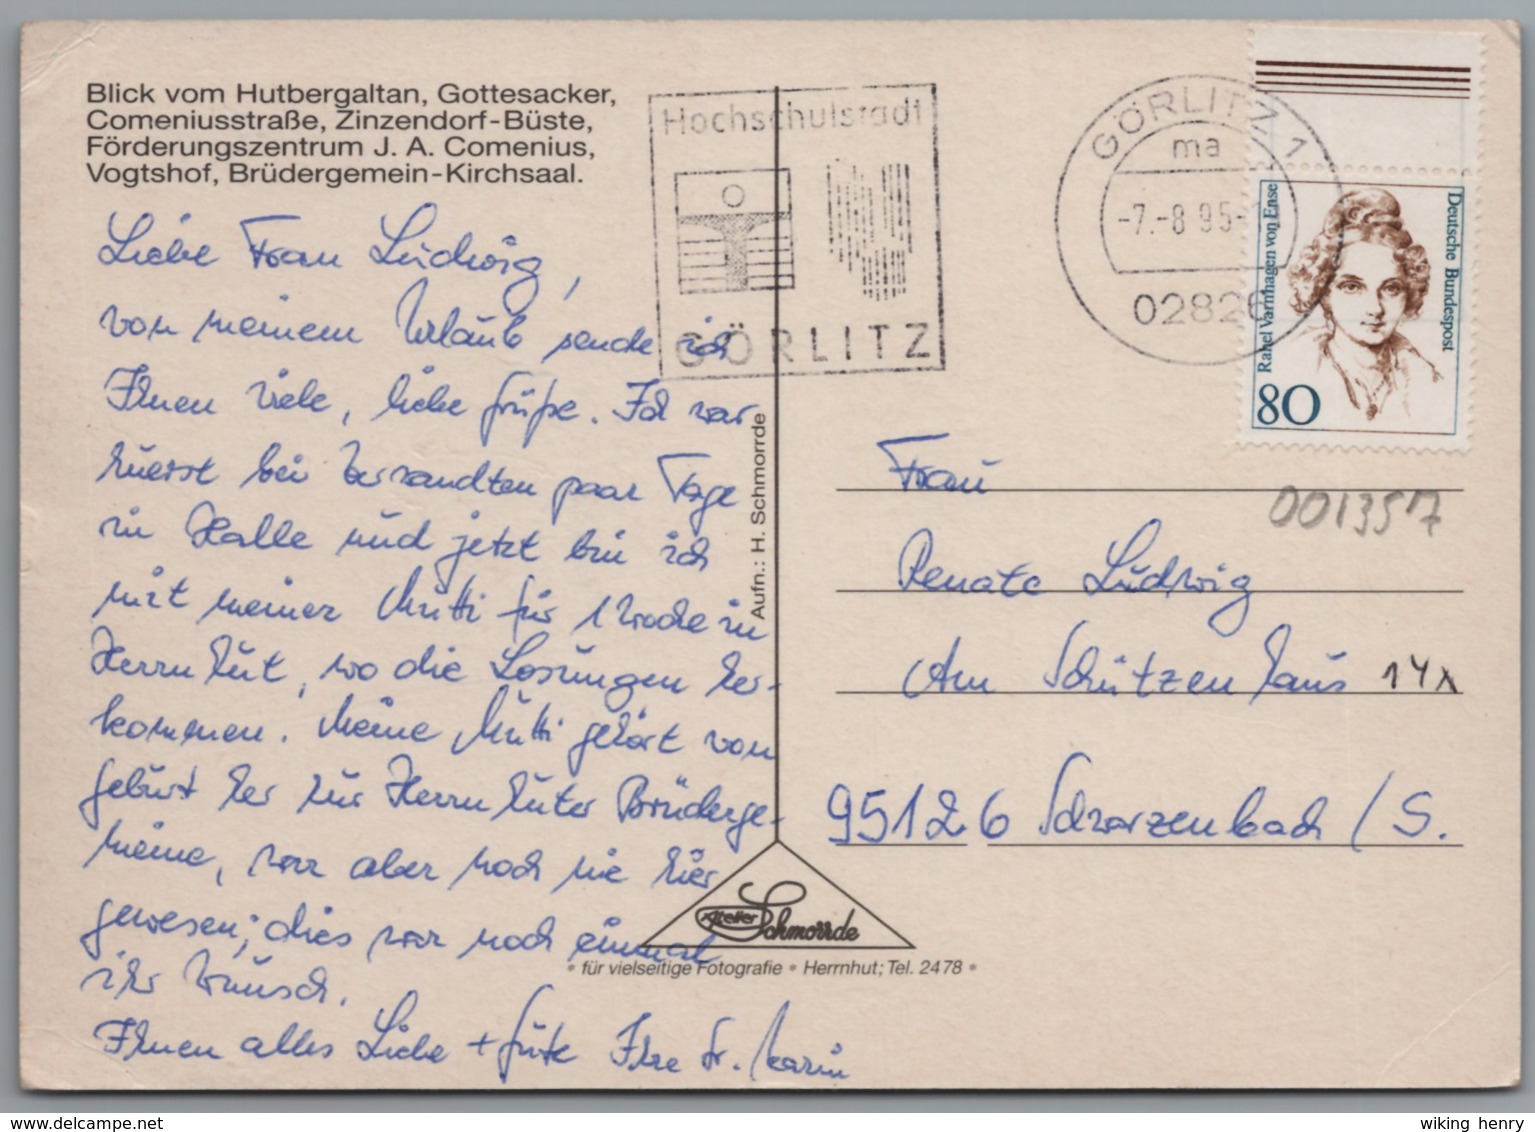 Blick vom Hutbergaltan, Gottesacker,
Comeniusstraße, Zinzendorf-Büste,
Förderungszentrum J. A. Comenius,
Vogtshof, Brüdergemein-Kirchsaal.
Liebe Frau Ludwig,
von meinem Urlaub sende ich
Ihnen viele, liebe Grüße. Ich war
zuerst bei Verwandten paar Tage
in Halle und jetzt bin ich
mit meiner Mutti für 1 Woche in
Herrnhut, wo die Losungen her-
kommen. Meine Mutti gehört von
Geburt her zur Herrnhuter Brüderge-
meine, war aber noch nie hier
gewesen; dies war noch einmal
ihr Wunsch.
Ihnen alles Liebe + Gute Ihre Fr. Karin
Hochschulstadt
GÖRLITZ
GÖRLITZ 1
ma
-7.-8 95-
02826
Rahel Varnhagen von Ense
Deutsche Bundespost
80
Aufn.: H. Schmorrde
Frau
001357
Renate Ludwig
Am Schützenhaus 14x
95126 Schwarzenbach / S.
Atelier Schmorrde
• für vielseitige Fotografie • Herrnhut; Tel. 2478 •
www.delcampe.net
wiking henry